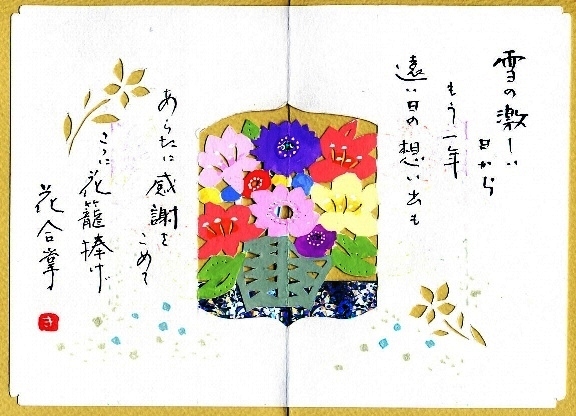 雪の激しい
日から
もう一年
遠い日の想い出も
あらたに感謝を
こめて
ここに花籠捧げ
花合掌
き